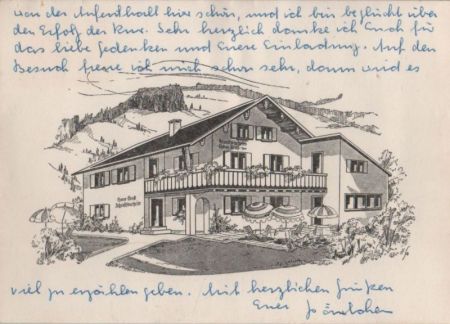 war der Aufenthalt hier schön, und ich bin beglückt über
der Erfolg der Kur. Sehr herzlich danke ich Euch für
das liebe Gedenken und Euere Einladung. Auf den
Besuch freue ich mich schon sehr, dann wird es
viel zu erzählen geben. Mit herzlichen Grüßen
Euer